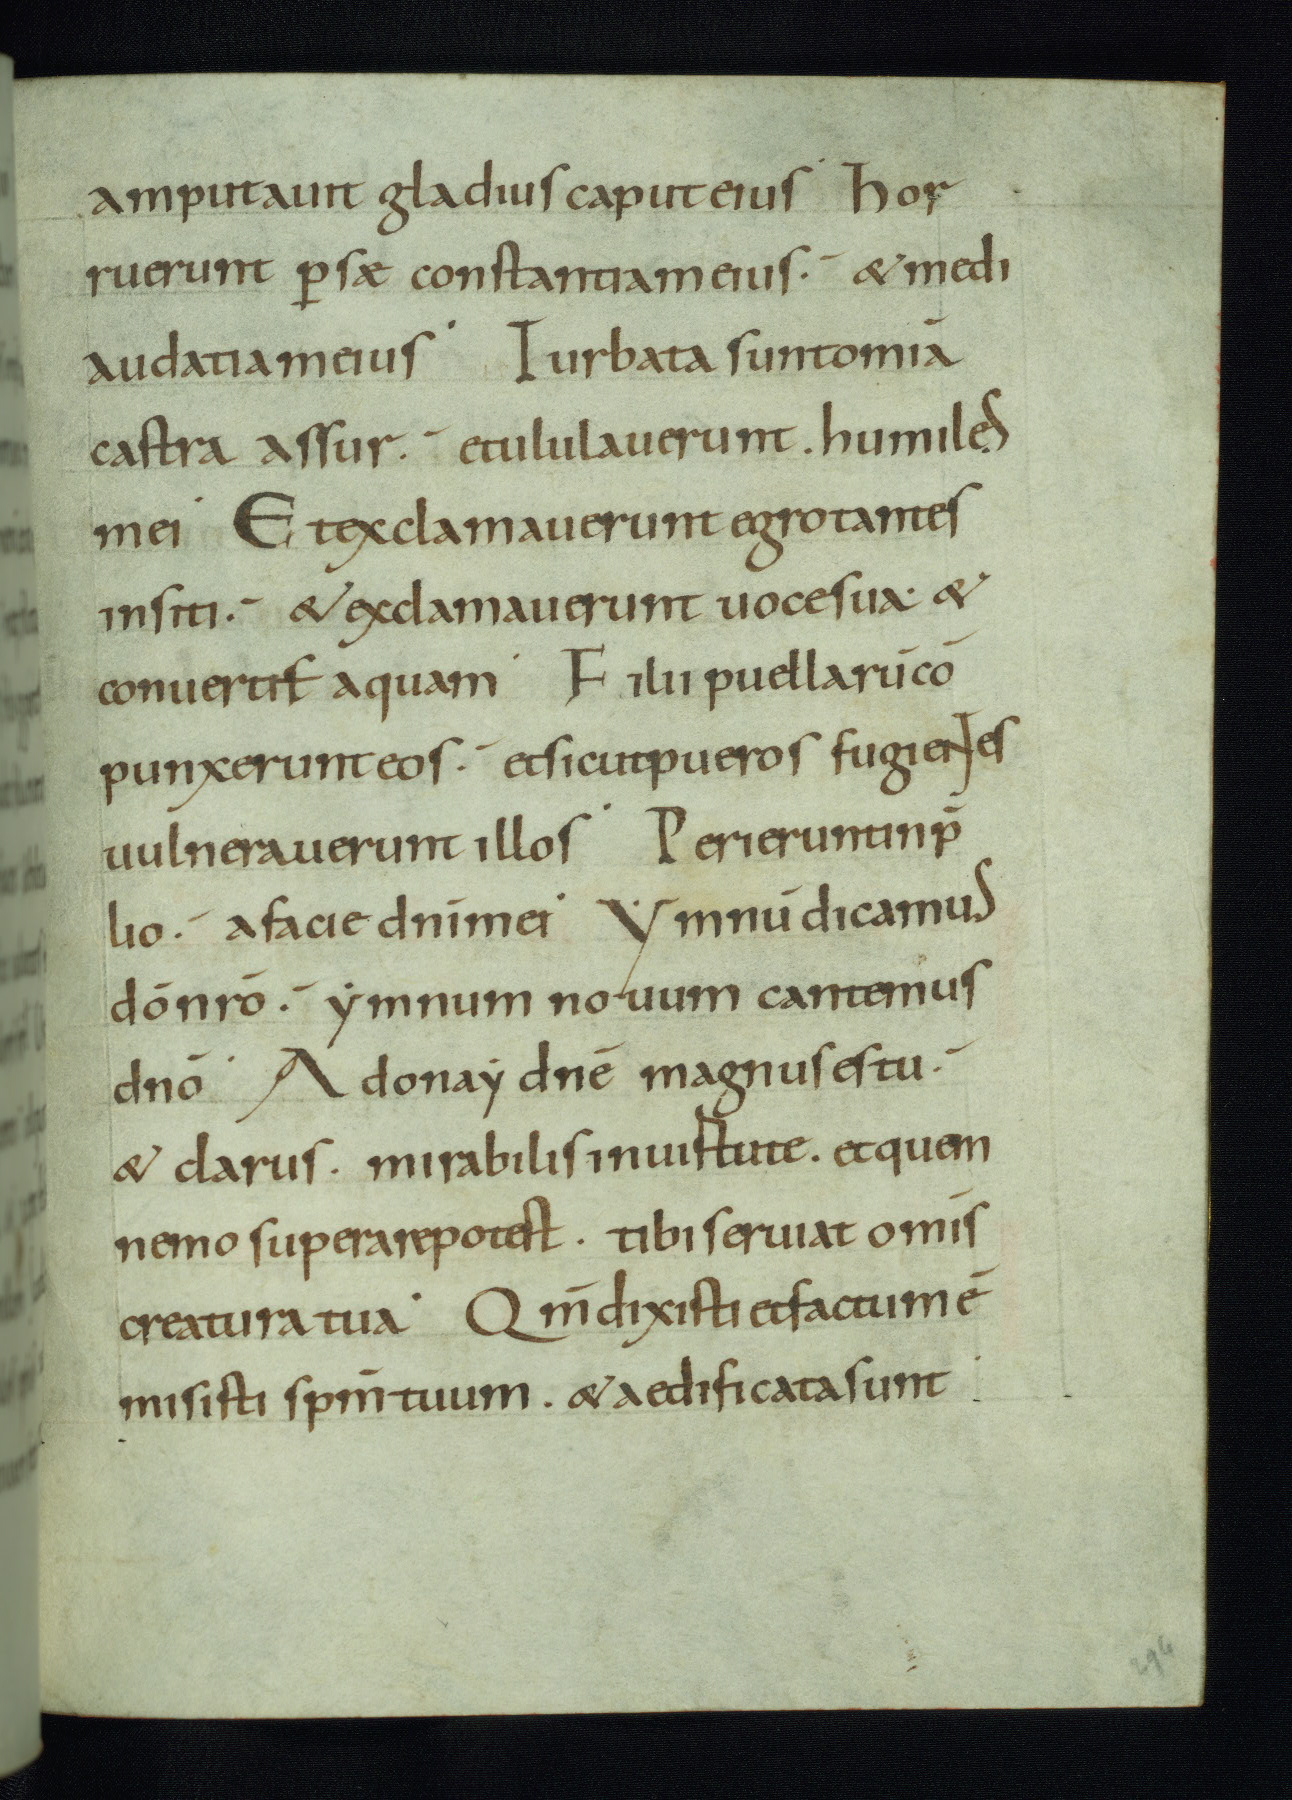 amputauit gladius caput eius· Hor
ruerunt ꝑsæ constantiam eius.- & medi
audatiam eius· Turbata sunt om̄ia
castra assur.- et ululauerunt. humiles
mei· Et exclamauerunt egrotantes
in siti.- & exclamauerunt uoce sua· &
conuertit aquam· Filii puellarū cō
punxerunt eos.- et sicut pueros fugientes
uulnerauerunt illos· Perierunt in p̄
lio.- a facie dn̄i mei· Ymnū dicamus
dō nrō.- ẏmnum nouum cantemus
dnō· Adonaẏ dnē magnus es tu.-
& clarus. mirabilis in uirtute. et quem
nemo superare potest. tibi seruiat om̄is
creatura tua· Qm̄ dixisti et factum ē
misisti spm̄ tuum. & aedificata sunt
296